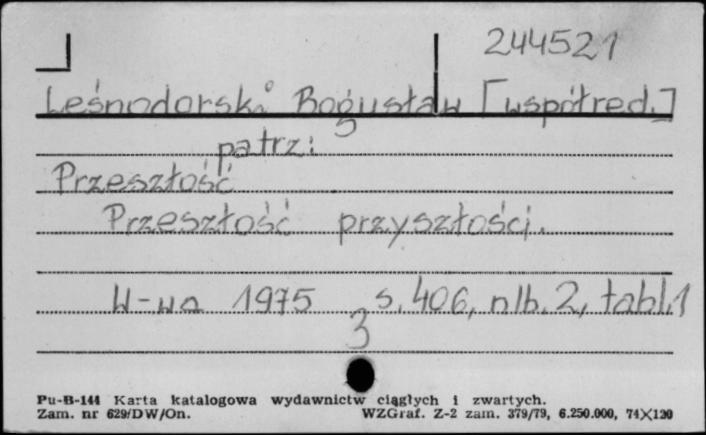 244521
Leśnodorski Bogusław [współred.]
patrz:
Przeszłość
Przeszłość przyszłości.
W-wa 1975 s. 406, nlb. 2, tabl. 1
3
Pu-B-144 Karta katalogowa wydawnictw ciągłych i zwartych.
Zam. nr 629/DW/On. WZGraf. Z-2 zam. 379/79, 6.250.000, 74×120